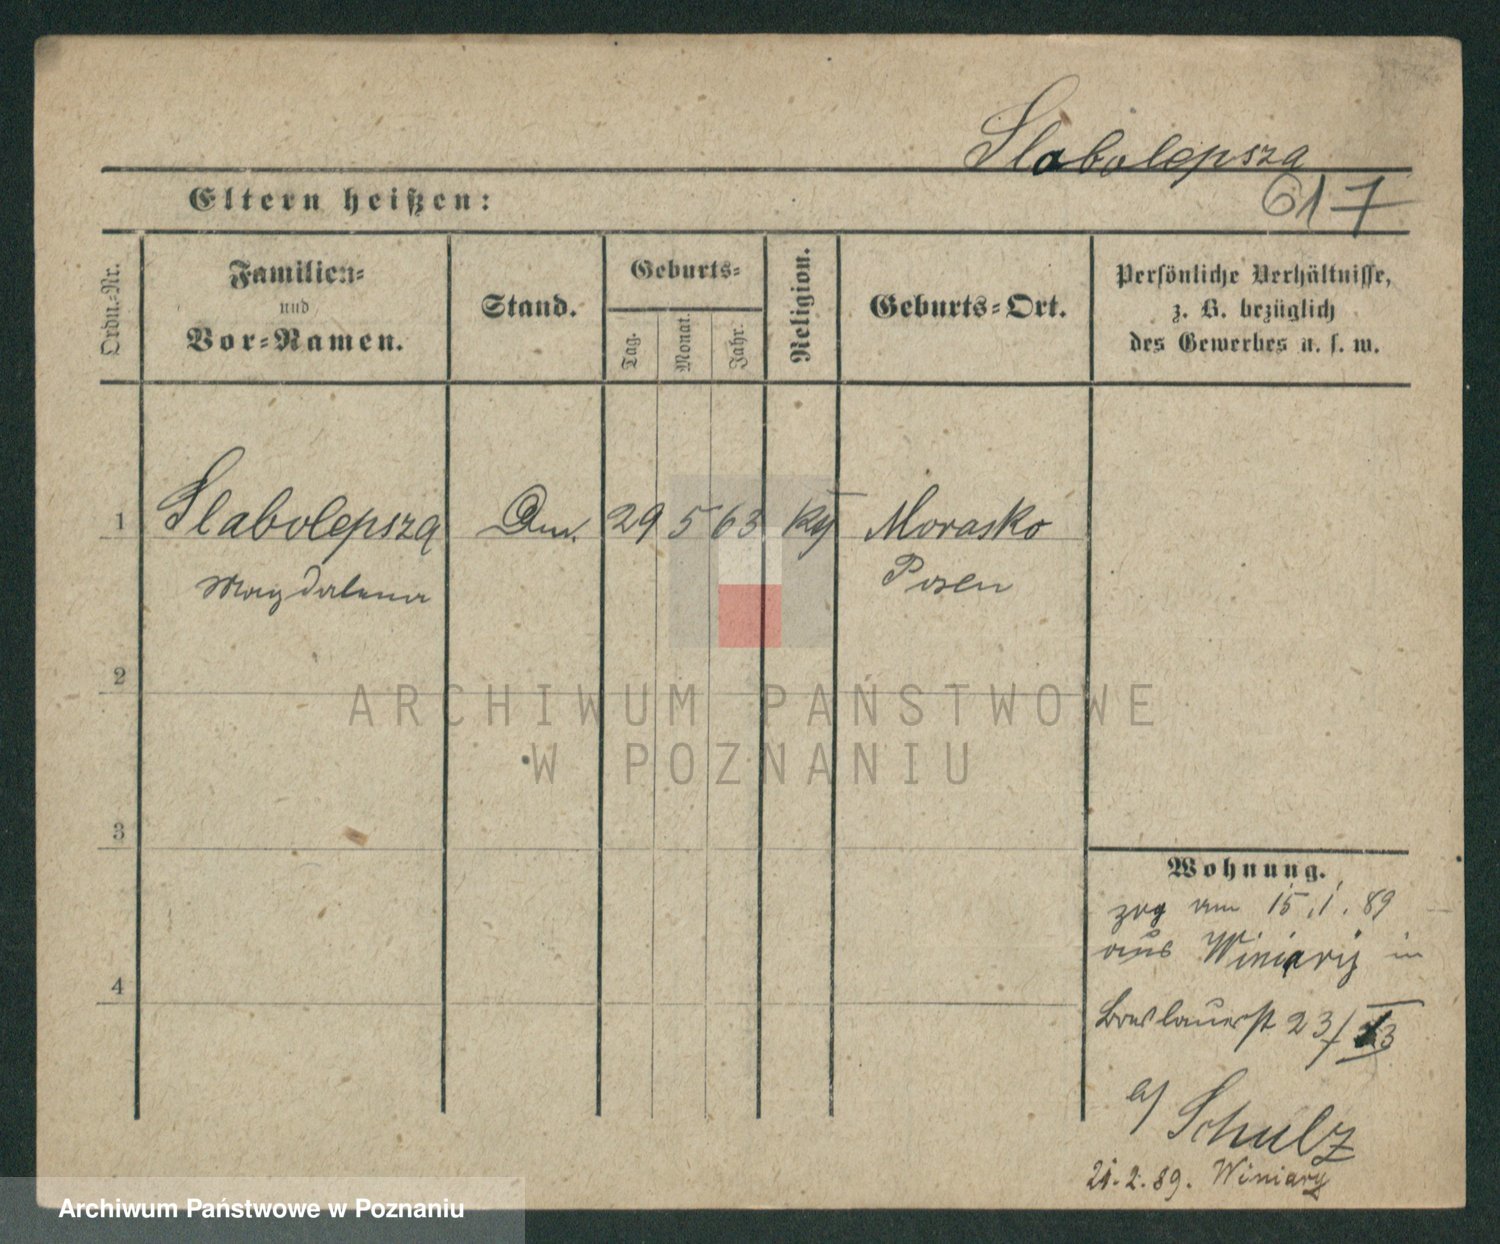 Slabolepsza
Eltern heißen:
617
Ordn.-Nr.
Familien-
und
Vor-Namen.
Stand.
Geburts-
Tag.
Monat.
Jahr.
Religion.
Geburts-Ort.
Persönliche Verhältnisse,
z. B. bezüglich
des Gewerbes u. s. w.
1 Slabolepsza 29 5 63 Morasko
Magdalena Posen
2
3
4
Wohnung.
zog am 15.1.89
aus Winiary in
Breslauerst 23/
b/ Schulz
21.2.89. Winiary
ARCHIWUM PAŃSTWOWE
W POZNANIU
Archiwum Państwowe w Poznaniu